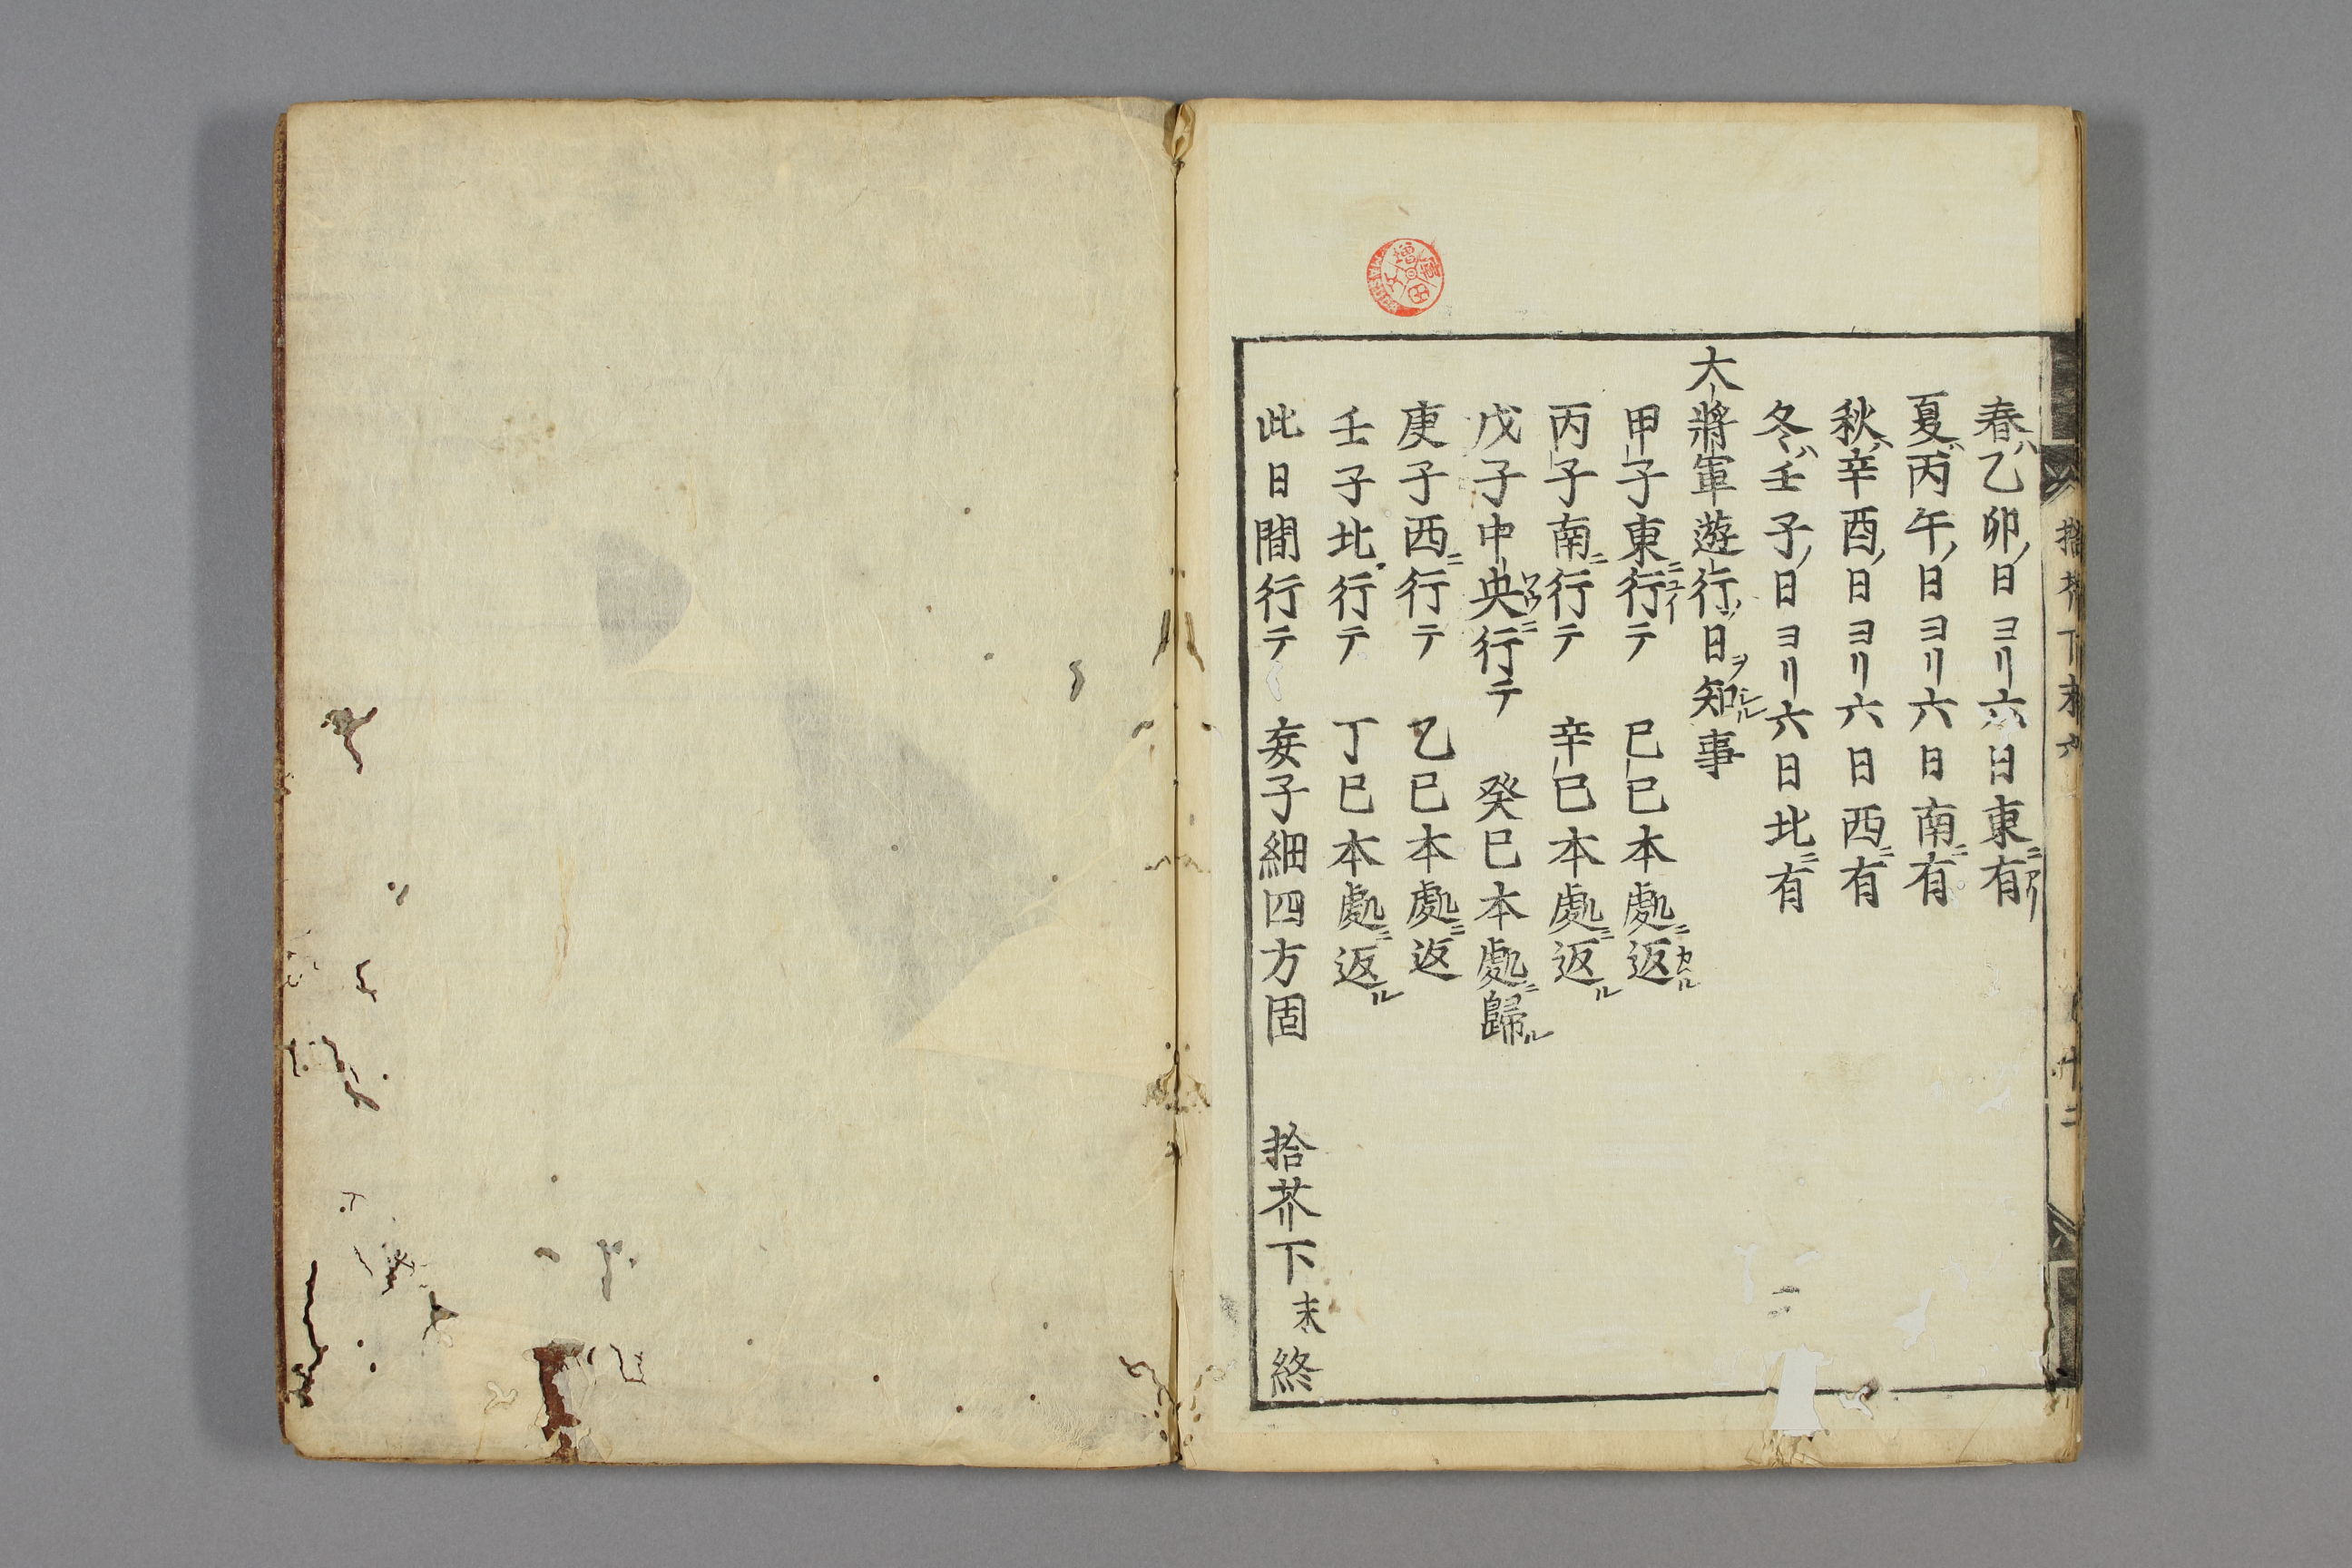 春ハ乙卯ノ日ヨリ六日東ニ有アリ
夏ハ丙午ノ日ヨリ六日南ニ有
秋ハ辛酉ノ日ヨリ六日西ニ有
冬ハ壬子ノ日ヨリ六日北ニ有
大將軍遊行ノ日ヲ知ル事
甲子東ニ行ユイテ 巳巳本處ニ返カヘル
丙子南ニ行テ 辛巳本處ニ返ル
戊子中央ニ行テ 癸巳本處ニ歸ル
庚子西ニ行テ 乙巳本處ニ返
壬子北行テ 丁巳本處ニ返ル
此日間行テ 妄子細四方固 拾芥下末終
拾芥下末 十二